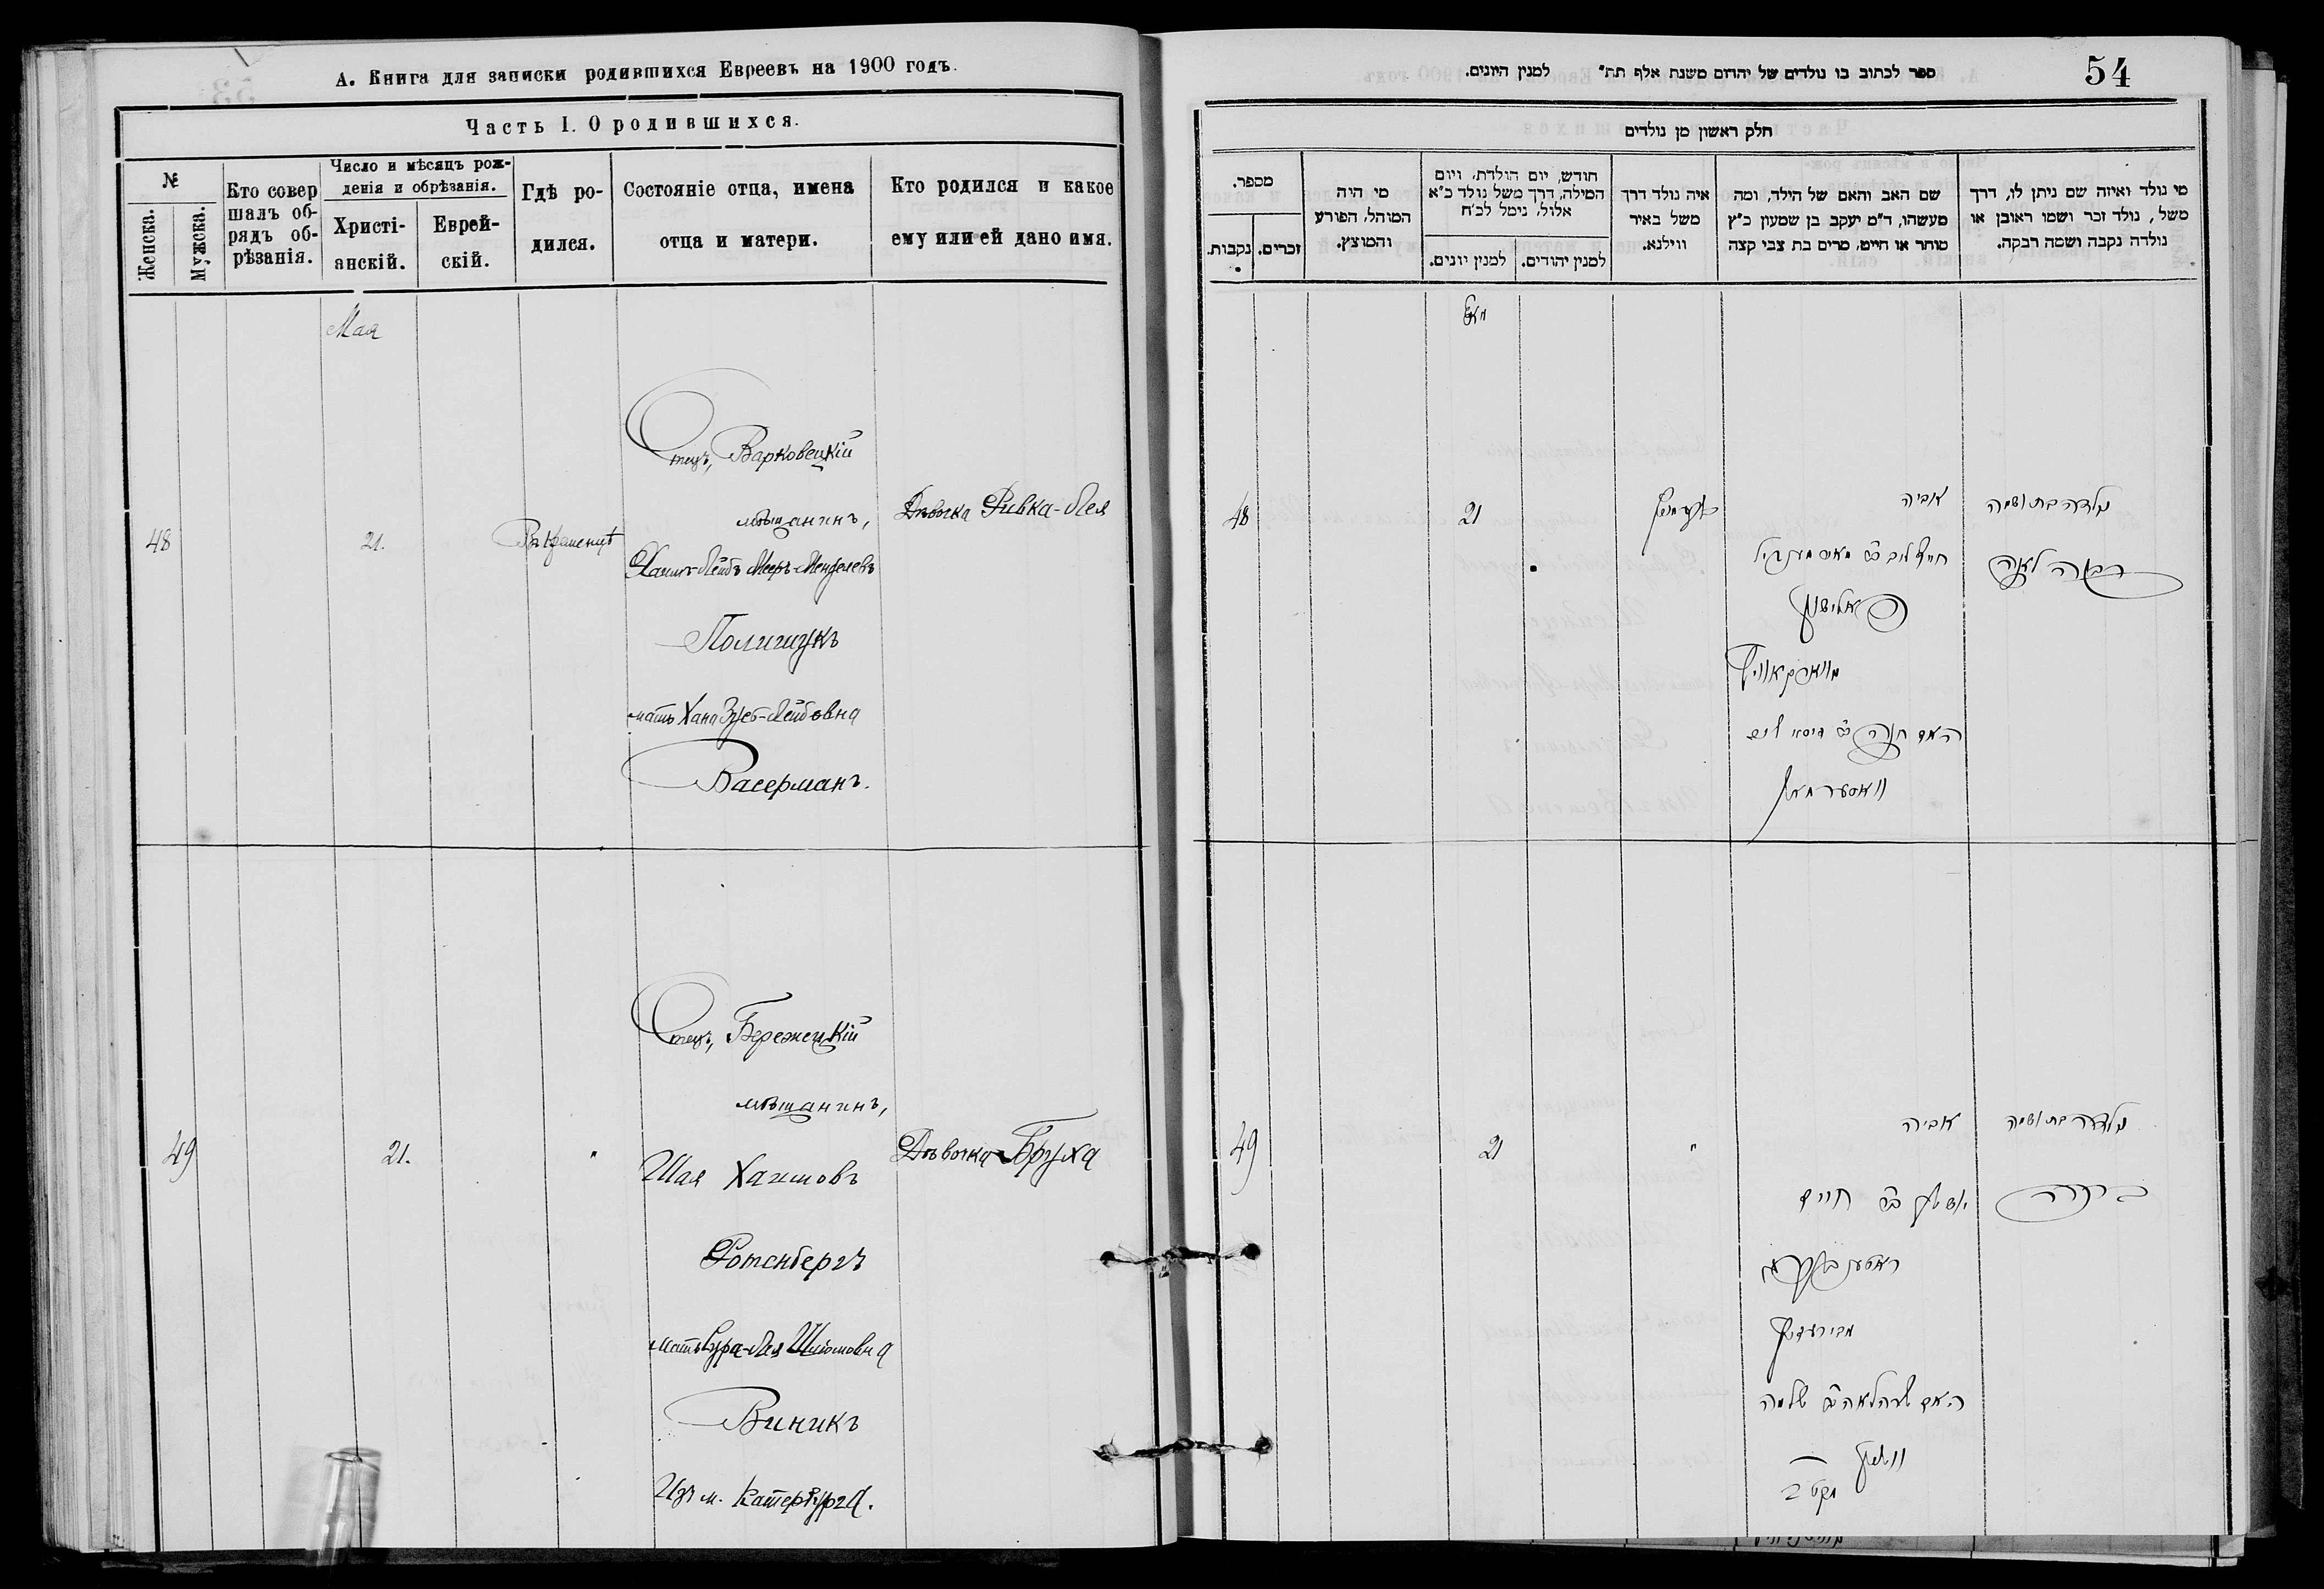 А. Книга для записки родившихся Евреевъ на 1900 годъ.
Часть I. О родившихся.
№
Женска.
Мужска.
Кто совер
шалъ об-
рядъ об-
рѣзанія.
Число и мѣсяцъ рож-
денія и обрѣзанія.
Христі-
анскій.
Еврей-
скій.
Гдѣ ро-
дился.
Состояніе отца, имена
отца и матери.
Кто родился и какое
ему или ей дано имя.
Мая
48
21.
Въ Кременцѣ
Отецъ, Варковецкій
мѣщанинъ,
Хаимъ-Лейбъ Мееръ-Менделевъ
Полищукъ
мать Хана Зусь-Лейбовна
Васерманъ.
Дѣвочка Ривка-Лея
49
21.
"
Отецъ, Бережецкій
мѣщанинъ,
Шая Хаимовъ
Ротенбергъ
мать Сура-Лея Шлiомовна
Виникъ
Изъ м. Катербурга.
Дѣвочка Бруха
54
ספר לכתוב בו נולדים של יהדים משנת אלף תת״ למנין היונים.
חלק ראשון מן נולדים
מספר.
נקבות.
זכרים.
מי היה
המוהל, הפורע
והמוצץ.
חודש, יום הולדת, ויום
המילה, דרך משל נולד כ״א
אלול, נימל לכ״ח
למנין יונים.
למנין יהודים.
איה נולד דרך
משל באיר
ווילנא.
שם האב והאם של הילד, ומה
מעשהו, ד״מ יעקב בן שמעון כ״ץ
סוחר או חייט, מרים בת צבי קצה
מי נולד ואיזה שם ניתן לו, דרך
משל, נולד זכר ושמו ראובן או
נולדה נקבה ושמה רבקה.
מאי
48
21
קרעמניץ
אביה
פאלישוק
האם חנה
וואסערמאן
נולדה בת ושמה
רבקה לאה
49
21
"
אביה
חיים
ראטענבערג
האם שרה לאה שלמה
וויניק
נולדה בת ושמה
ברכה